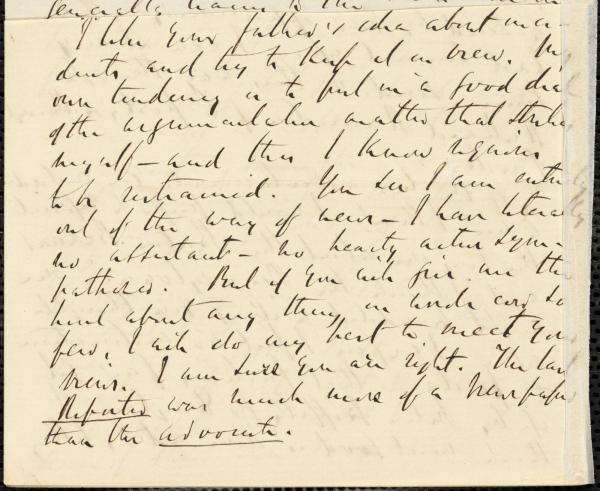 generally
I like your father's idea about inci-
dents and try to keep it in view. My
own tendency is to put in a good dea
of the argumentative matter that strike
myself – and this I know requires
to be restrained. You see I am entir
out of the way of news – I have litera
no assistant – no hearty active sym-
pathizer. But if you will give me the
hint about any thing, in under ever so
few, I will do my best to meet you
views. I am sure you are right. The last
Reporter was much more of a newspaper
than the advocate.